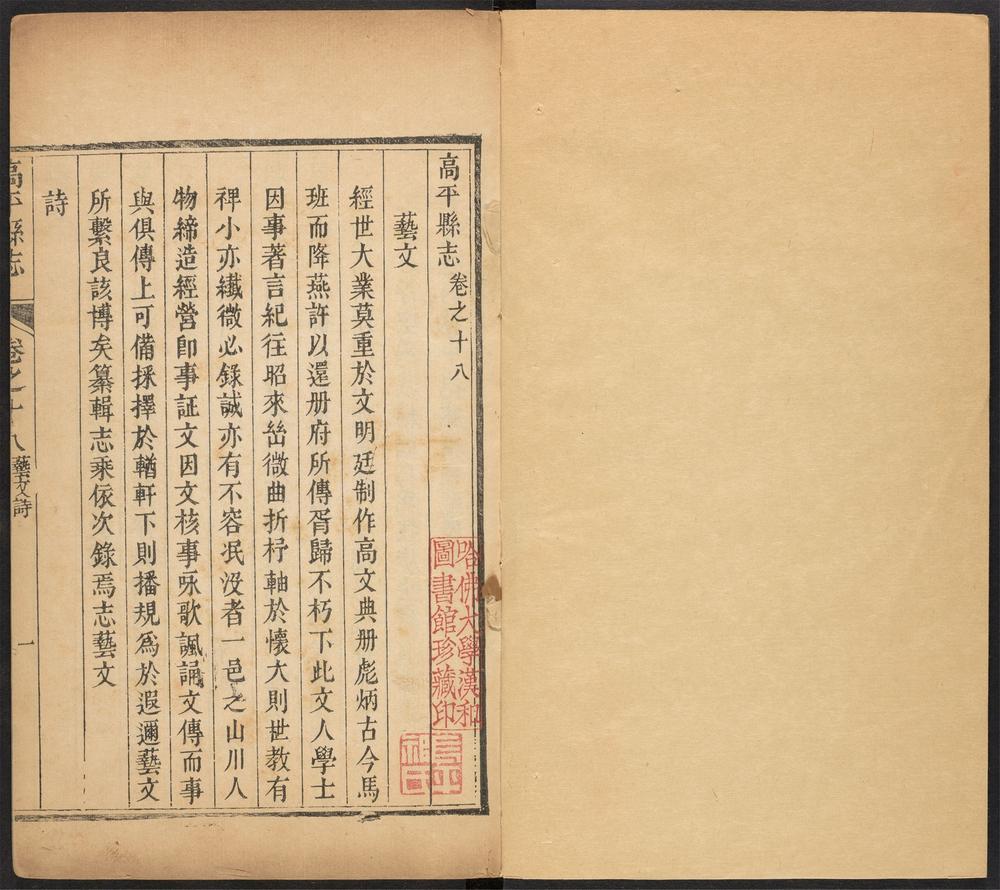 高平縣志卷之十八
藝文
經世大業莫重於文明廷制作高文典册彪炳古今馬
班而降燕許以還册府所傳胥歸不朽下此文人學士
因事著言紀往昭來嵓微曲折杼軸於懷大則世教有
裨小亦纎微必錄誠亦有不容泯没者一邑之山川人
物締造經營卽事証文因文核事咏歌諷誦文傳而事
與俱傳上可備採擇於輶軒下則播規爲於遐邇藝文
所繫良該博矣纂輯志乘依次錄焉志藝文
詩
高平縣志
卷之十八藝文詩
一
哈佛大學漢和
圖書館珍藏印